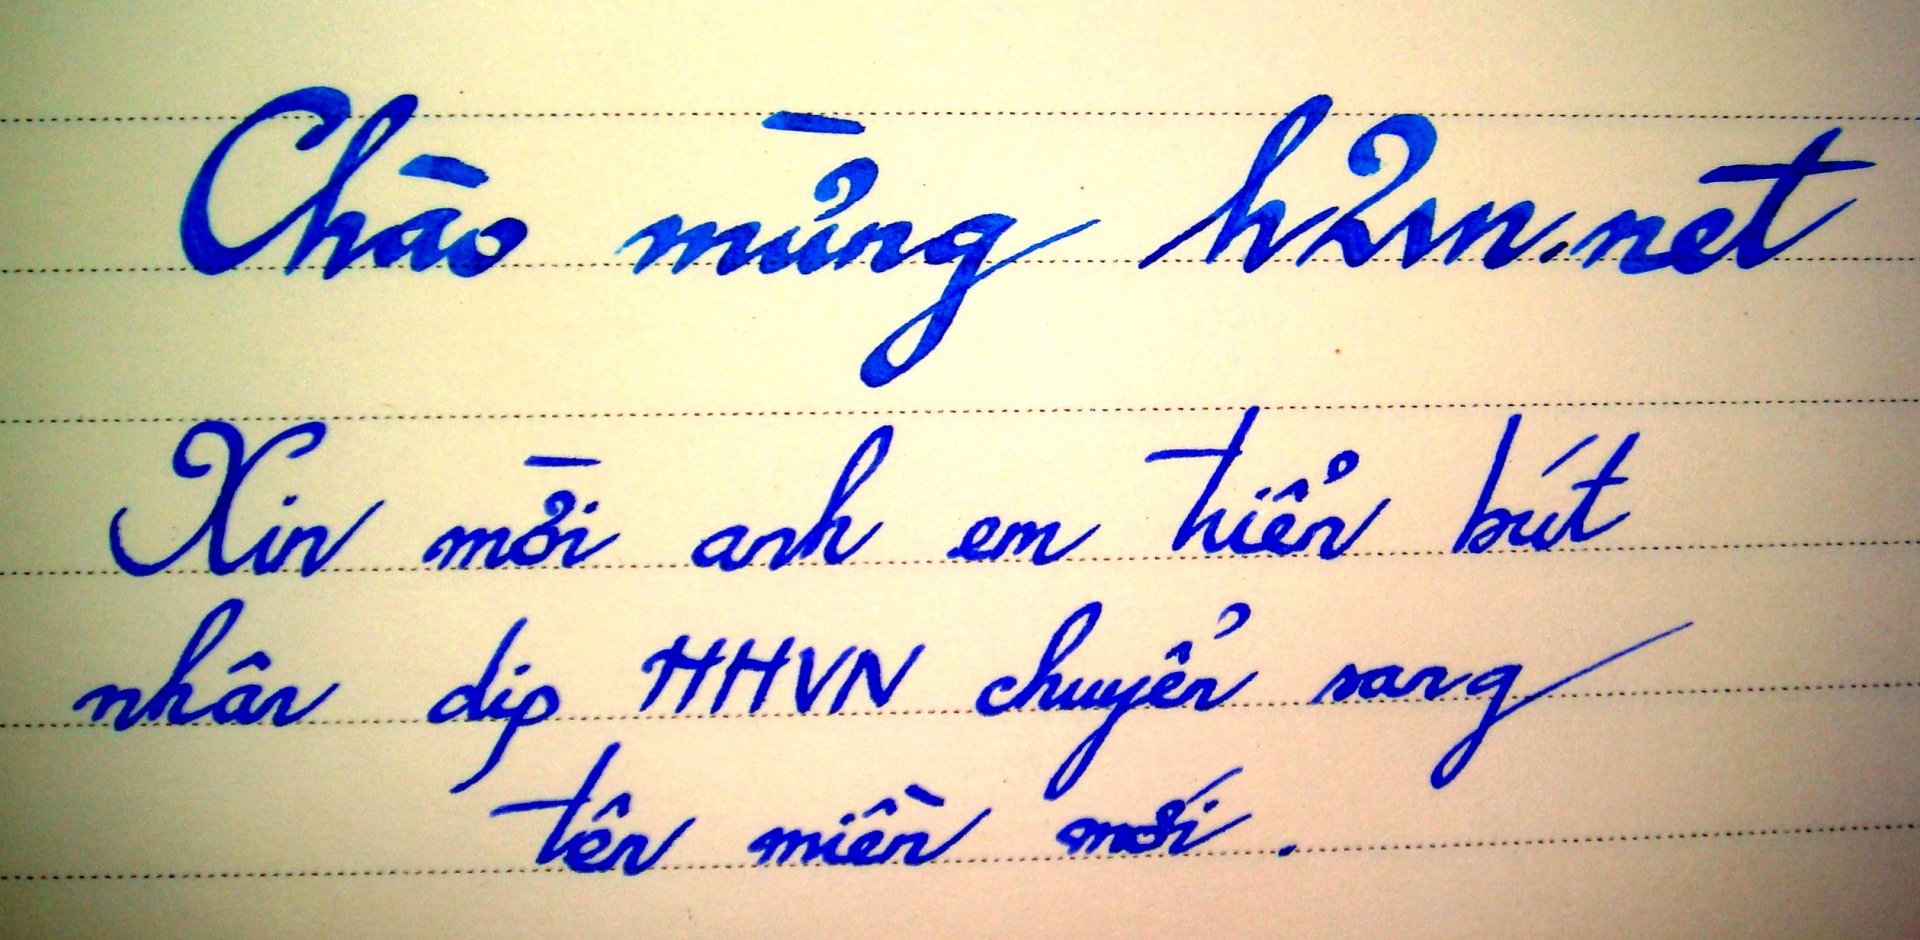 Chào mừng h2vn.net
Xin mời anh em triển bút
nhân dịp HHVN chuyển sang
tên miền mới.